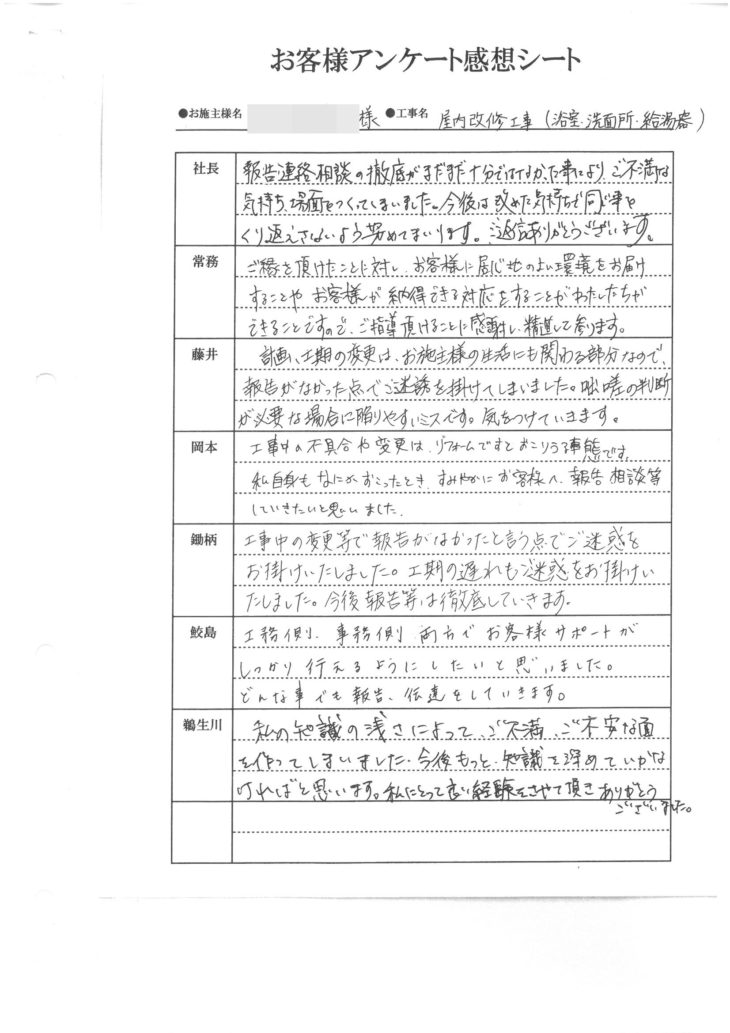 お客様アンケート感想シート
●お施主様名 様 ●工事名 屋内改修工事(浴室・洗面所・給湯器)
社長
報告連絡相談の撤底がまだまだ十分ではなかった事により、ご不満な
気持ち、場面をつくってしまいました。今後は改めた気持ちで同じ事を
くり返えさないよう努めてまいります。ご返信ありがとうございます。
常務
ご縁を頂けたことに対し、お客様に居心地のよい環境をお届け
することや お客様が納得できる対応をすることがわたしたちが
できることですので、ご指導頂けることに感謝し、精進して参ります。
藤井
計画、工期の変更は、お施主様の生活にも関わる部分なので、
報告がなかった点でご迷誘を掛けてしまいました。咄嗟の判断
が必要な場合に陥りやすいミスです。気をつけていきます。
岡本
工事中の不具合や変更は、リフォームですとおこりうる事態です。
私自身もなにかおこったとき、すみやかにお客様へ、報告 相談等
していきたいと思いました。
鋤柄
工事中の変更等で報告がなかったと言う点でご迷惑を
お掛けいたしました。工期の遅れもご迷惑をお掛けい
たしました。今後報告等は徹底していきます。
鮫島
工務側、事務側 両方でお客様サポートが
しっかり行えるようにしたいと思いました。
どんな事でも報告、伝達をしていきます。
鵜生川
私の知識の浅さによって、ご不満、ご不安な面
を作ってしまいました。今後もっと、知識を深めていかな
ければと思います。私にとって良い経験をさせて頂き ありがとう
ございました。